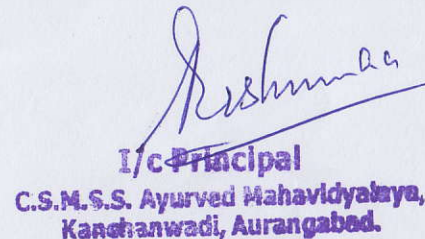 I/c Principal
C.S.M.S.S. Ayurved Mahavidyalaya,
Kanchanwadi, Aurangabad.